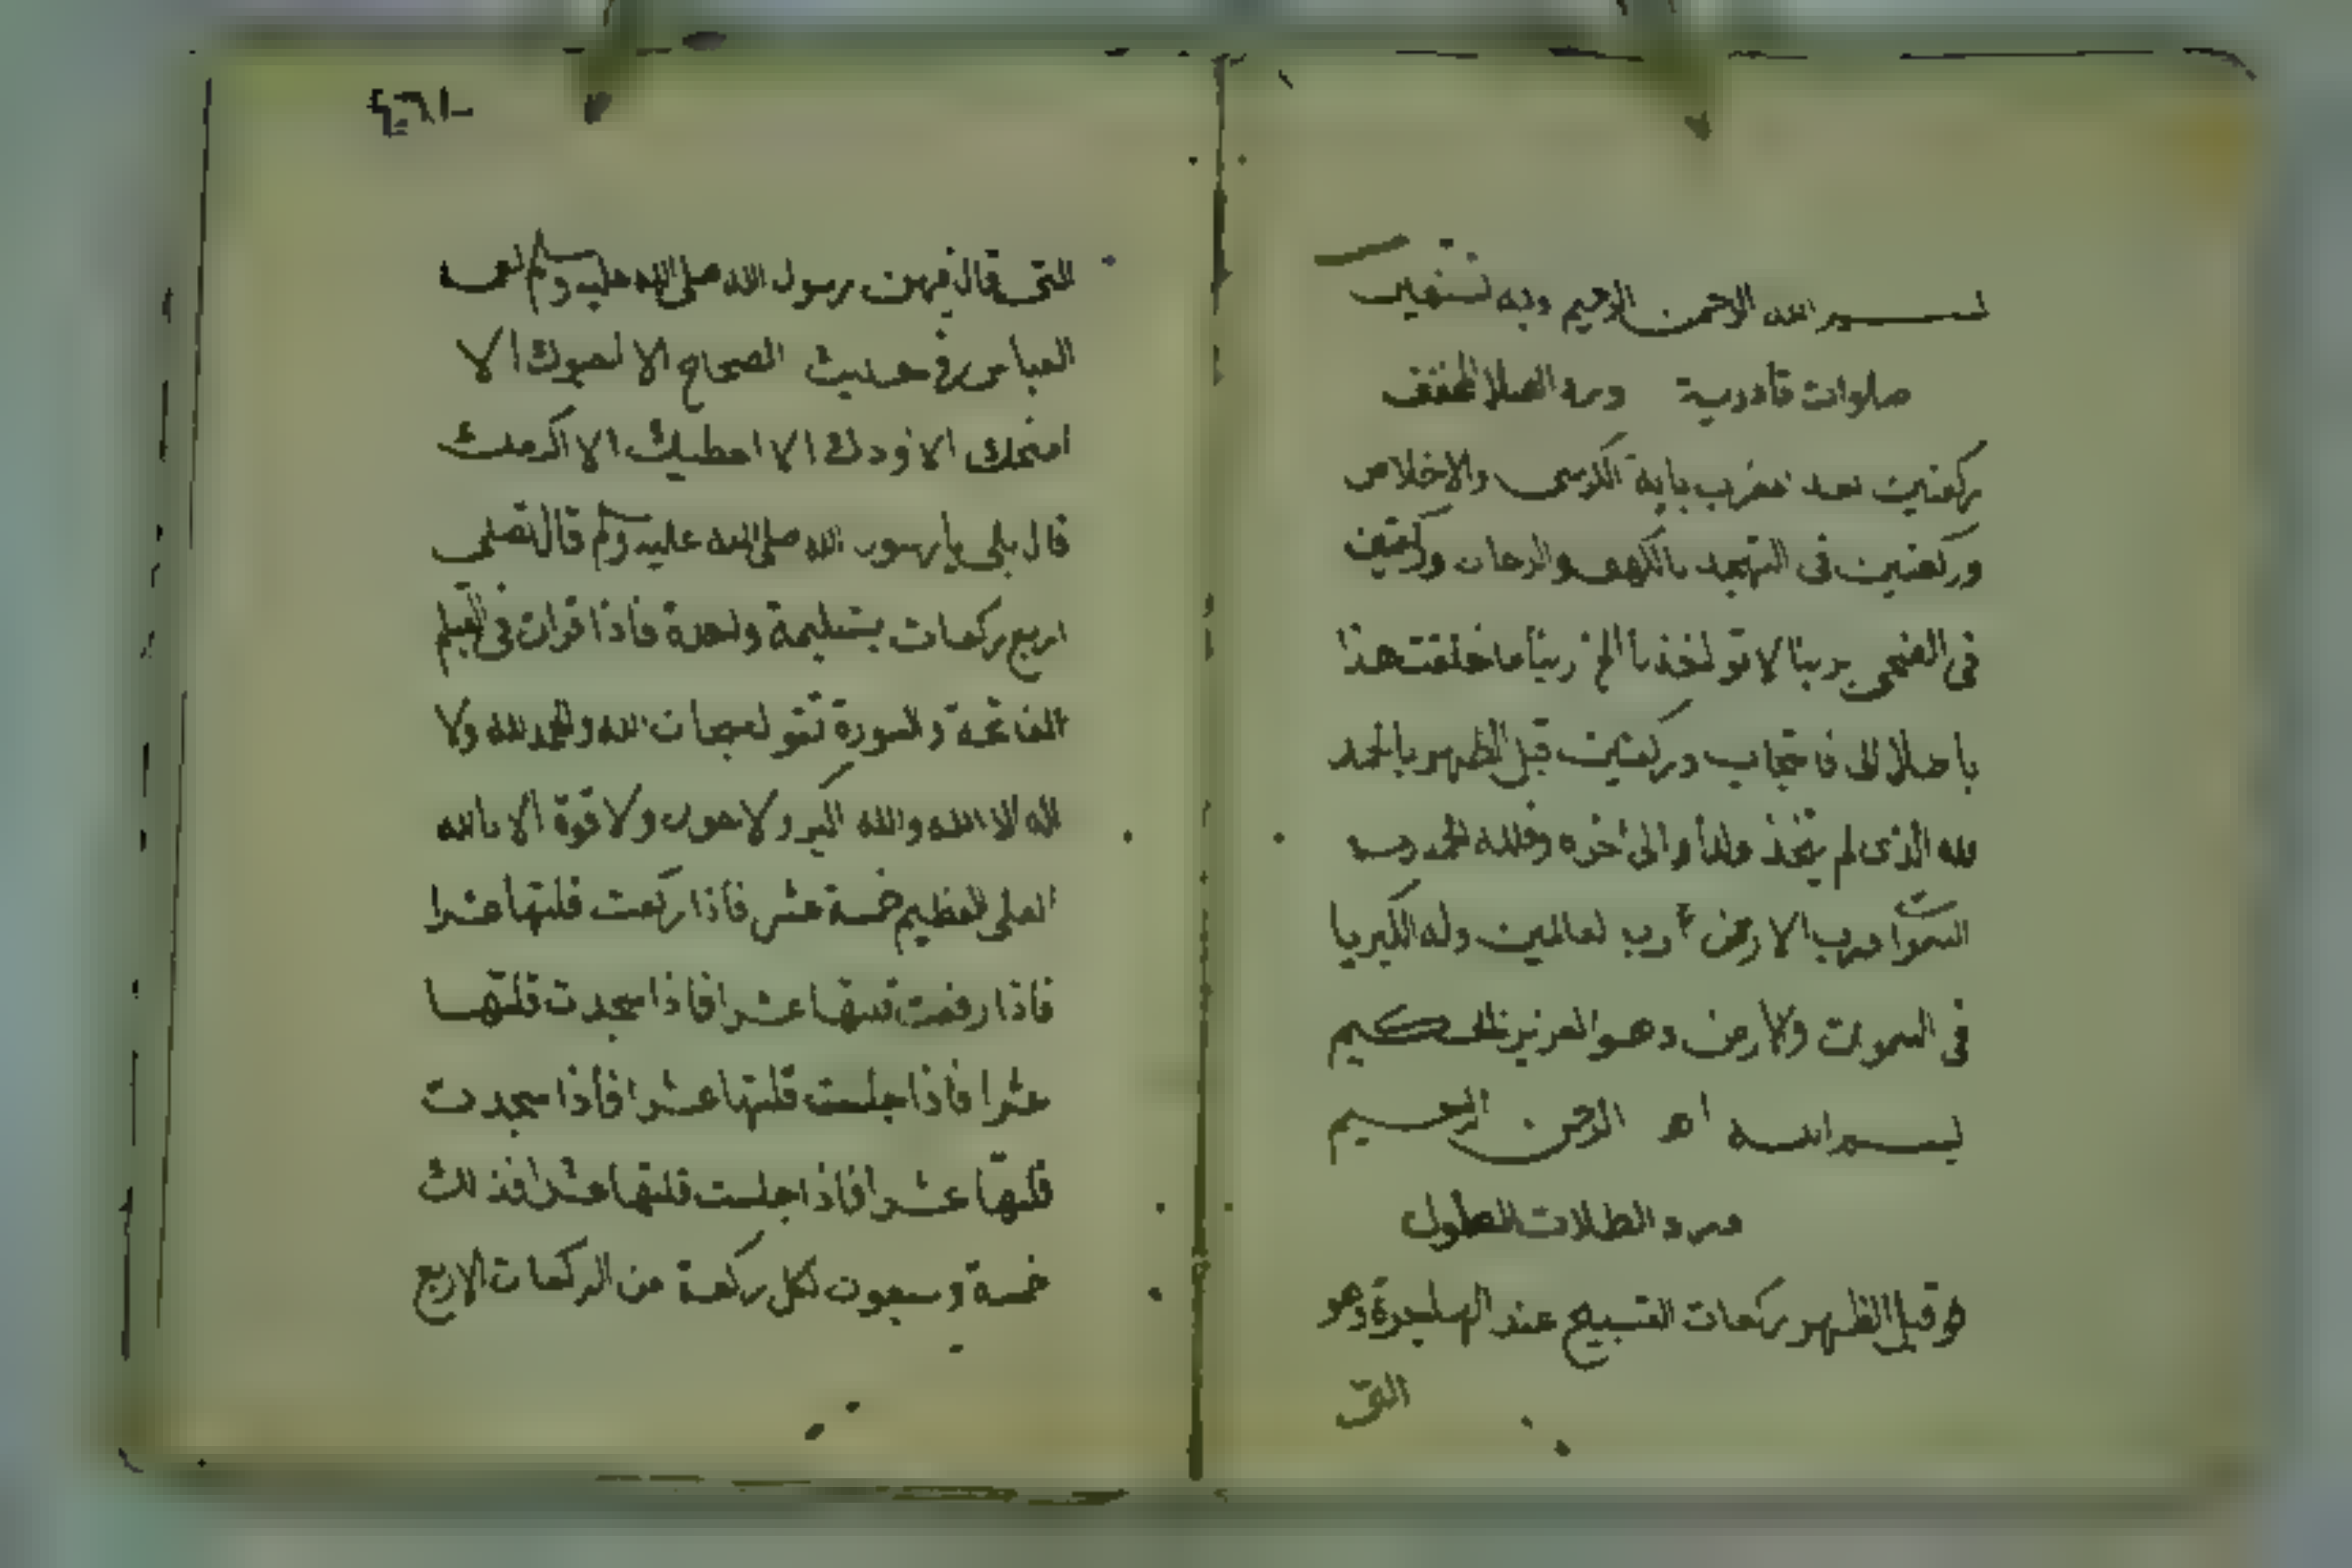 بسم الله الرحمن الرحيم وبه نستعين
صلوات قادرية ورد الصلا المخفف
ركعتين بعد مغرب باية الكرسى والاخلاص
وركعتين فى التهجد بالكهف والدخان وركعتين
فى الضحى بربنا لا تو لخذنا الخ ربنا ما خلقت هذا
باطلا الى فا ستجاب وركعتين قبل الظهر بالحمد
لله الذى لم يتخذ ولدا والى اخره وفلله الحمد رب
السموا ورب الارض رب لعالمين وله الكبريا
فى السموت ولارض وهو العزيز الحكيم
بسم الله الرحمن الرحيم
الصلات المطول
هو قبل الظهر ركعات التسبيح عند الهاجرة وهو
التى
التى قال فيهن رسول الله صلى الله عليه وسلم
العباس فى حديث الصحاح الا احبوك الا
امنحك الا ازودك الا اعطيك الا اكرمك
قال بلى يا رسول الله صلى الله عليه وسلم قال تصلى
اربع ركعات بتسليمة واحدة فاذا قرات فى القيام
الفاتحة والسورة تقو لسبحان الله والحمد لله ولا
اله الا الله والله اكبر ولا حول ولا قوة الا بالله
العلى العظيم خمسة عشر فاذا ركعت قلتها عشرا
فاذا رفعت قلتها عشرا فاذا سجدت قلتها
عشرا فاذا جلست قلتها عشرا فاذا سجدت
قلتها عشرا فاذا جلست قلتها عشرا فذلك
خمسة وسبعون لكل ركعة من الركعات الاربع